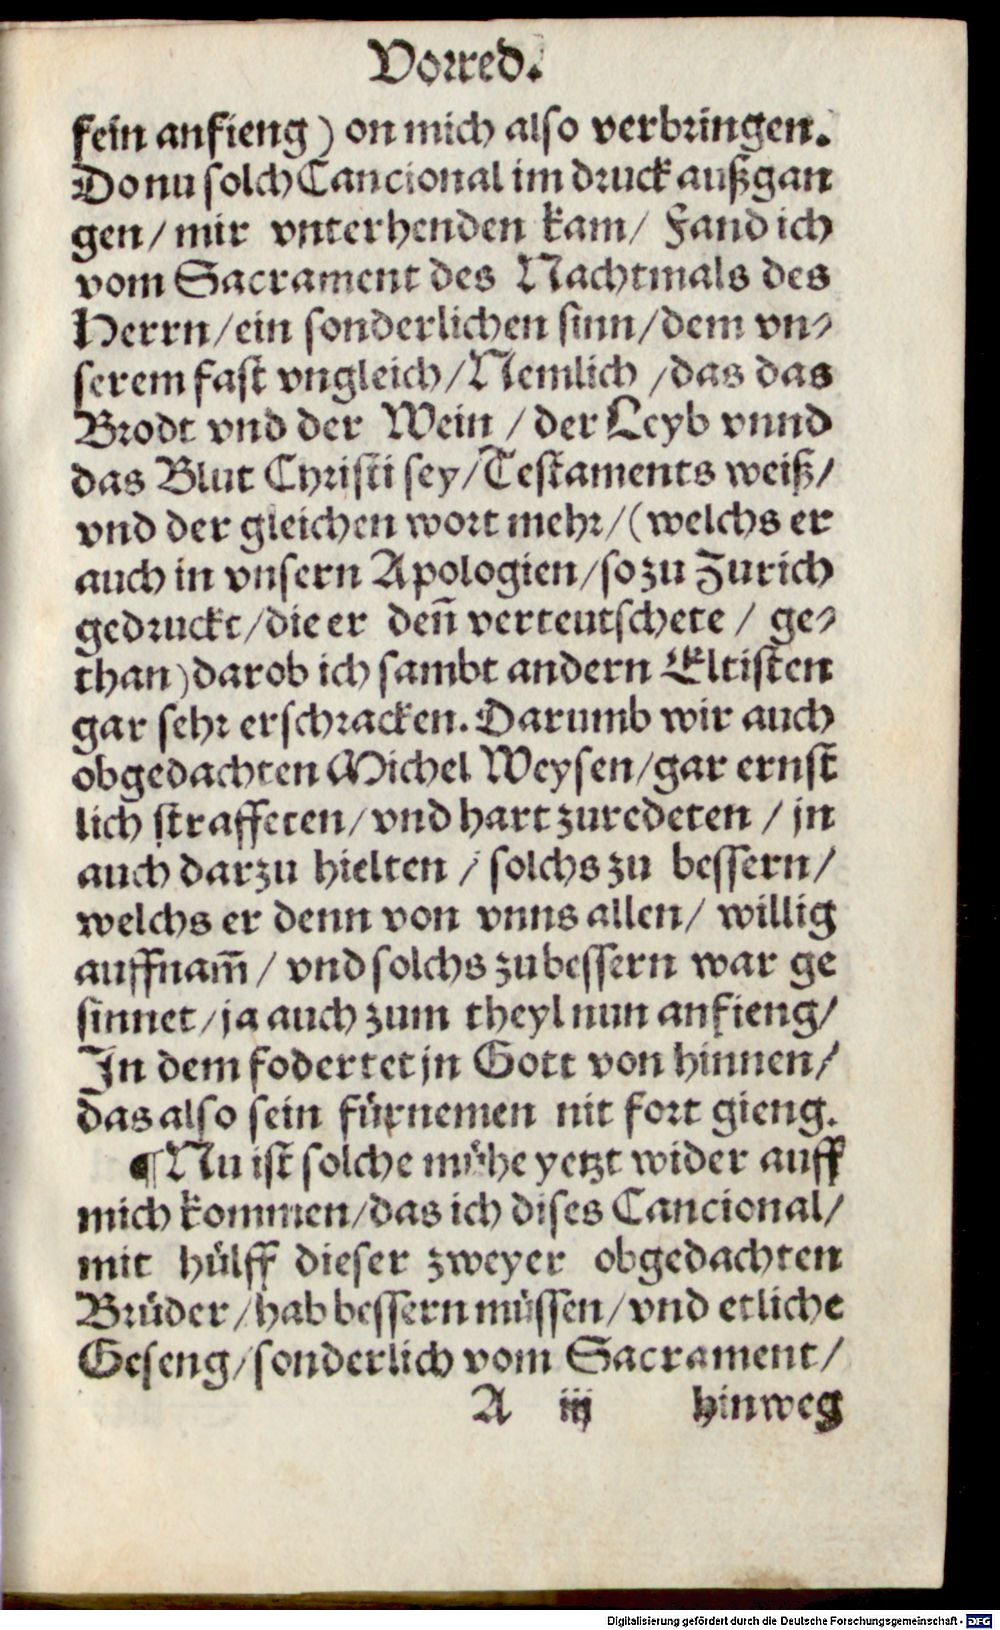 Vorred.
fein anfieng) on mich also verbringen.
Do nu solch Cancional im druck außgan
gen/ mir vnterhenden kam/ Fand ich
vom Sacrament des Nachtmals des
Herrn/ein sonderlichen sinn/dem vn⸗
serem fast vngleich/Nemlich /das das
Brodt vnd der Wein / der Leyb vnnd
das Blut Christi sey/Testaments weiß/
vnd der gleichen wort mehr/(welchs er
auch in vnsern Apologien/so zu Zurich
gedruckt/die er deñ verteutschete / ge⸗
than)darob ich sambt andern Eltisten
gar sehr erschracken. Darumb wir auch
obgedachten Michel Weysen/gar ernst
lich straffeten/vnd hart zuredeten / jn
auch darzu hielten / solchs zu bessern/
welchs er denn von vnns allen/ willig
auffnam̃ / vnd solchs zubessern war ge
sinnet/ja auch zum theyl nun anfieng/
In dem fodertet jn Gott von hinnen/
das also sein fürnemen nit fort gieng.
¶Nu ist solche mühe yetzt wider auff
mich kommen/das ich dises Cancional/
mit hülff dieser zweyer obgedachten
Brüder/hab bessern müssen/vnd etliche
Geseng/sonderlich vom Sacrament/
A iij hinweg
Digitalisierung gefördert durch die Deutsche Forschungsgemeinschaft - DFG